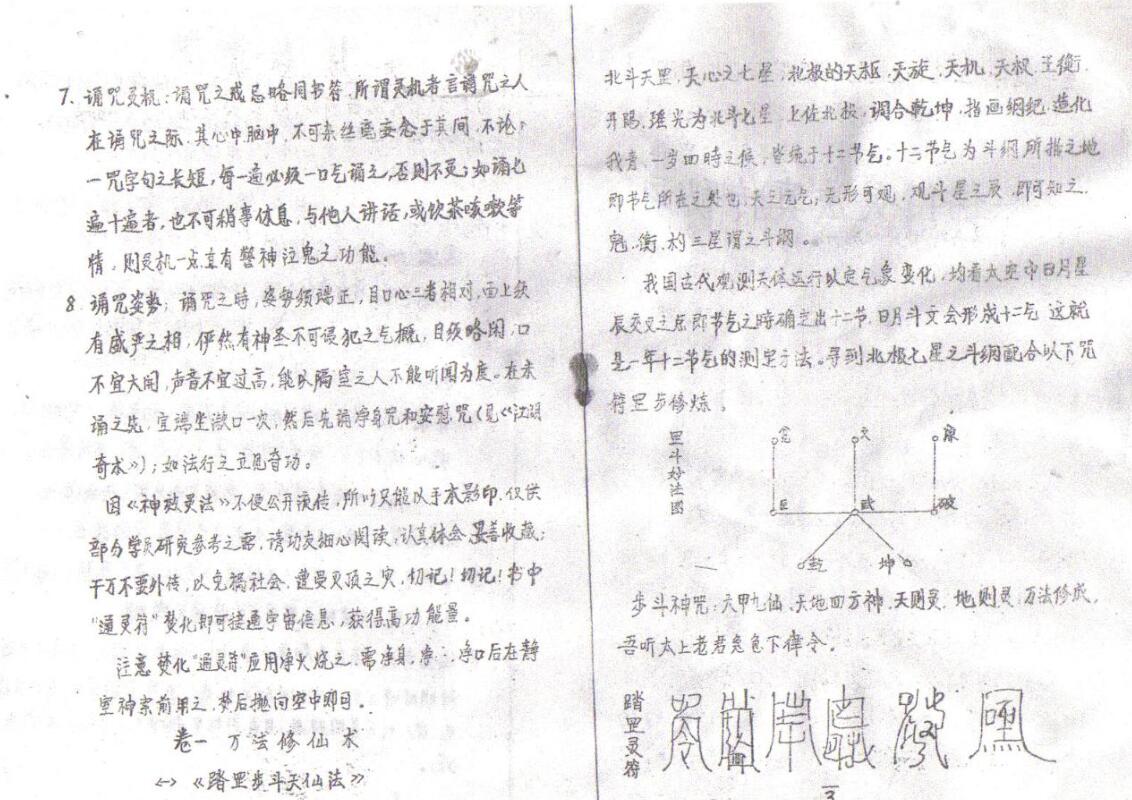 7. 诵咒灵机：诵咒之戒忌略同书符，所谓灵机者言诵咒之人
在诵咒之际，其心中脑中，不可杂丝毫妄念于其间，不论
一咒字句之长短，每一遍必须一口气诵之，否则不灵；如诵七
遍十遍者，也不可稍事休息，与他人讲话，或饮茶咳嗽等
情，则灵机一点真有警神泣鬼之功能。
8. 诵咒姿势：诵咒之时，姿势须端正，目口心三者相对，面上须
有威严之相，俨然有神圣不可侵犯之气概，目须略闭，口
不宜大开，声音不宜过高，能以隔室之人不能听闻为度。在未
诵之先，宜端坐漱口一次，然后先诵净身咒和安慰咒（见《江湖
奇术》）；如法行之立见奇功。
因《神效灵法》不便公开流传，所以只能以手本影印，仅供
部分学员研究参考之需，请功友细心阅读，认真体会，妥善收藏；
千万不要外传，以免祸社会，遭曼灭顶之灾，切记！切记！书中
“通灵符”焚化即可接通宇宙信息，获得高功能量。
注意焚化“通灵符”应用净火烧之，需净身，净，净口后在静
室神案前用之，焚后抛向空中即可。
卷一 万法修仙术
<一>《踏罡步斗天仙法》
北斗天罡，天心之七星，北极的天枢，天旋，天机，天权，玉衡，
开阳，瑶光为北斗七星，上佐北极，调合乾坤，指画纲纪，造化
我者，一岁四時之候，皆统于十二节气。十二节气为斗纲所指之地
即节气所在之处也，天之元气，无形可观，观斗星之辰，即可知之，
魁、衡、杓三星谓之斗纲。
我国古代观测天体运行以定气象变化，均看太空中日月星
辰交叉之点即节气之時确定出十二节，日月斗文会形成十二气，这就
是一年十二节气的测定方法。寻到北极七星之斗纲配合以下咒
符罡步修炼。
罡斗妙法图
文
廉
巨
武
破
乾
坤
步斗神咒：六甲九仙，天地四方神，天则灵，地则灵，万法修成，
吾听太上老君急急下律令。
踏罡灵符
3